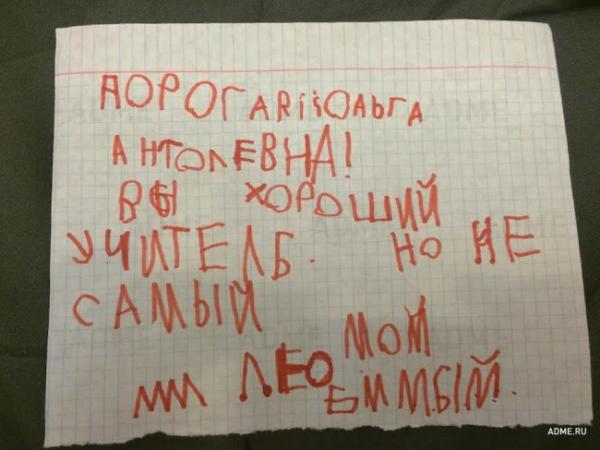 ДОРОГАЯ ОЛЬГА
АНТОЛЕВНА!
ВЫ ХОРОШИЙ
УЧИТЕЛЬ. НО НЕ
САМЫЙ
МОЙ
ЛЕОБИМЫЙ.
ADME.RU